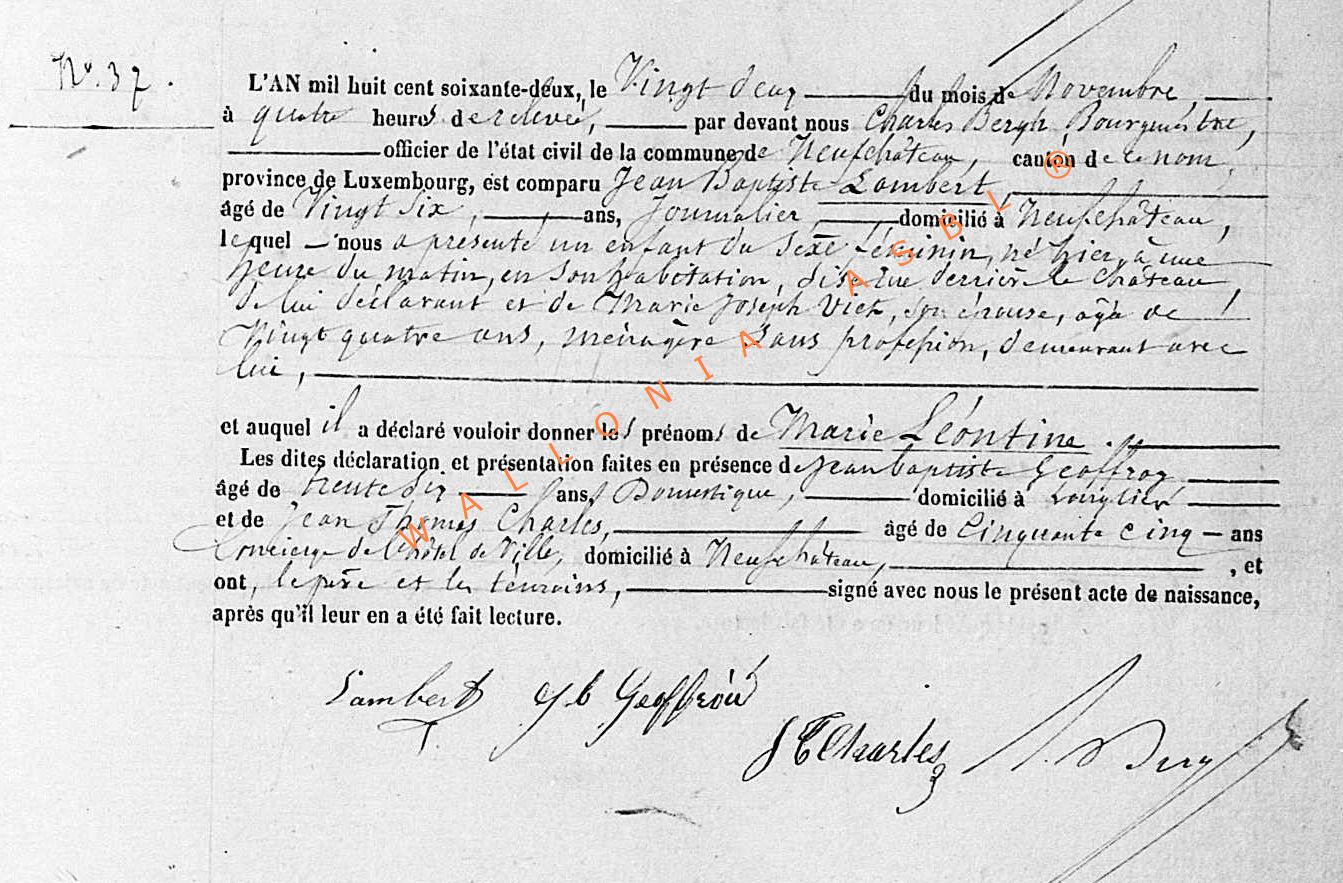 N°. 37.
L'AN mil huit cent soixante-deux, le Vingt deux du mois de Novembre,
à quatre heures de relevée, par devant nous Charles Bergh, Bourgmestre,
officier de l'état civil de la commune de Neufchâteau, canton de ce nom,
province de Luxembourg, est comparu Jean Baptiste Lambert,
âgé de Vingt Six, ans, Journalier, domicilié à Neufchâteau,
lequel nous a présenté un enfant du Sexe féminin, né hier, à une
heure du matin, en son habitation, dise Rue derrière le Château,
de lui déclarant et de Marie Joseph , son épouse, agée de
Vingt quatre ans, ménagère Sans profession, demeurant avec
lui,
et auquel il a déclaré vouloir donner les prénoms de Marie Léontine.
Les dites déclaration et présentation faites en présence de Jean baptiste Geoffroy
âgé de trente ans, Domestique, domicilié à Longlier
et de Jean Thomas Charles, âgé de Cinquante cinq ans
Concierge de l'hôtel de Ville, domicilié à Neufchâteau, , et
ont, le père et les témoins, signé avec nous le présent acte de naissance,
après qu'il leur en a été fait lecture.
Lambert J b Geoffroy
J T Charles
WALLONIA ASBL ®